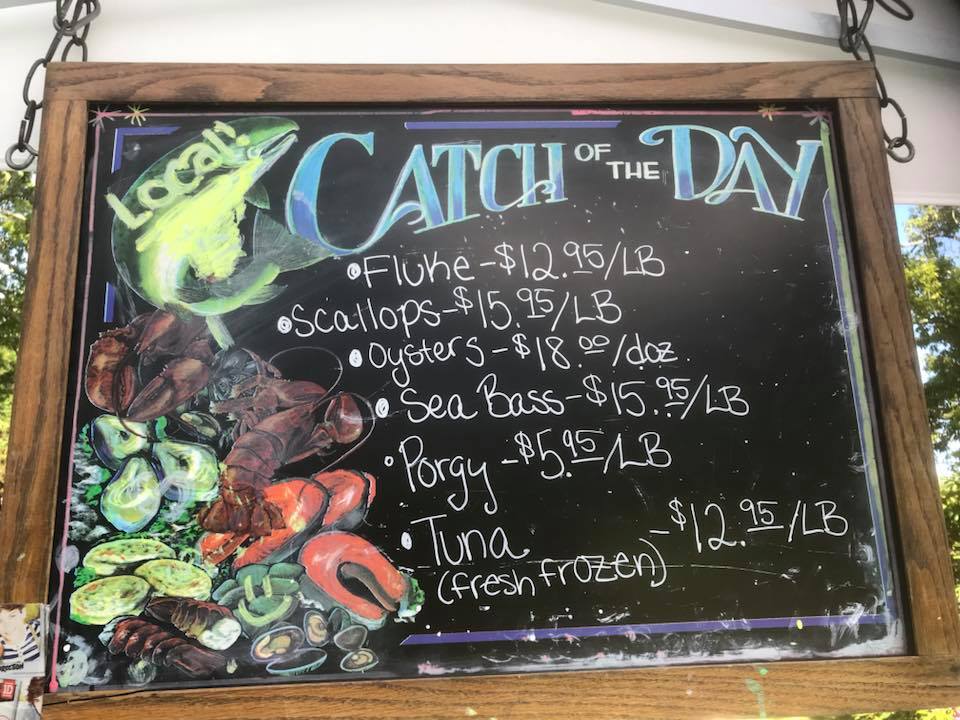 Local!
CATCH OF THE DAY
•Fluke-$12.95/LB
•Scallops-$15.95/LB
•Oysters-$18.00/doz.
•Sea Bass-$15.95/LB
•Porgy-$5.95/LB
•Tuna -$12.95/LB
(fresh frozen)
1D